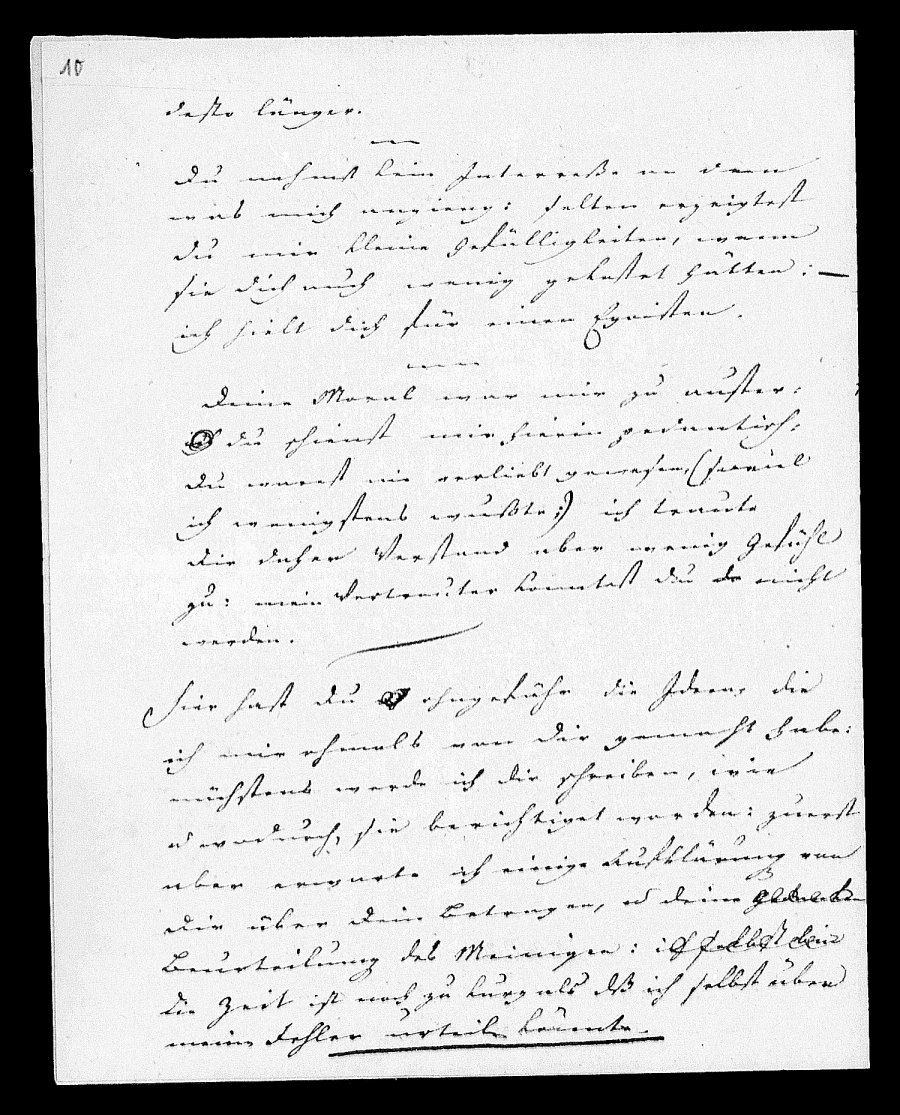 10
desto länger.
Du nahmst kein Interreße an dem
was mich angieng: selten erzeigtest
du mir kleine Gefälligkeiten, wenn
sie dich auch wenig gekostet hätten: —
ich hielt dich für einen Egoisten.
Deine Moral war mir zu auster:
du schienst mir hierin pedantisch:
du warst nie verliebt gewesen, (soviel
ich wenigstens wußte:) ich traute
dir daher Verstand aber wenig Gefühl
zu: mein Vertrauter konntest du nicht
werden.
Hier hast du ohngefähr die Ideen, die
ich mir ehmals von dir gemacht habe:
nächstens werde ich dir schreiben, wie
u wodurch, sie berichtiget worden: zuerst
aber erwarte ich einige Aufklärung von
dir über dein Betragen, u deine
Beurteilung des Meinigen: ich selbst
die Zeit ist noch zu kurz als dß ich selbst über
meine Fehler urteilen könnte.